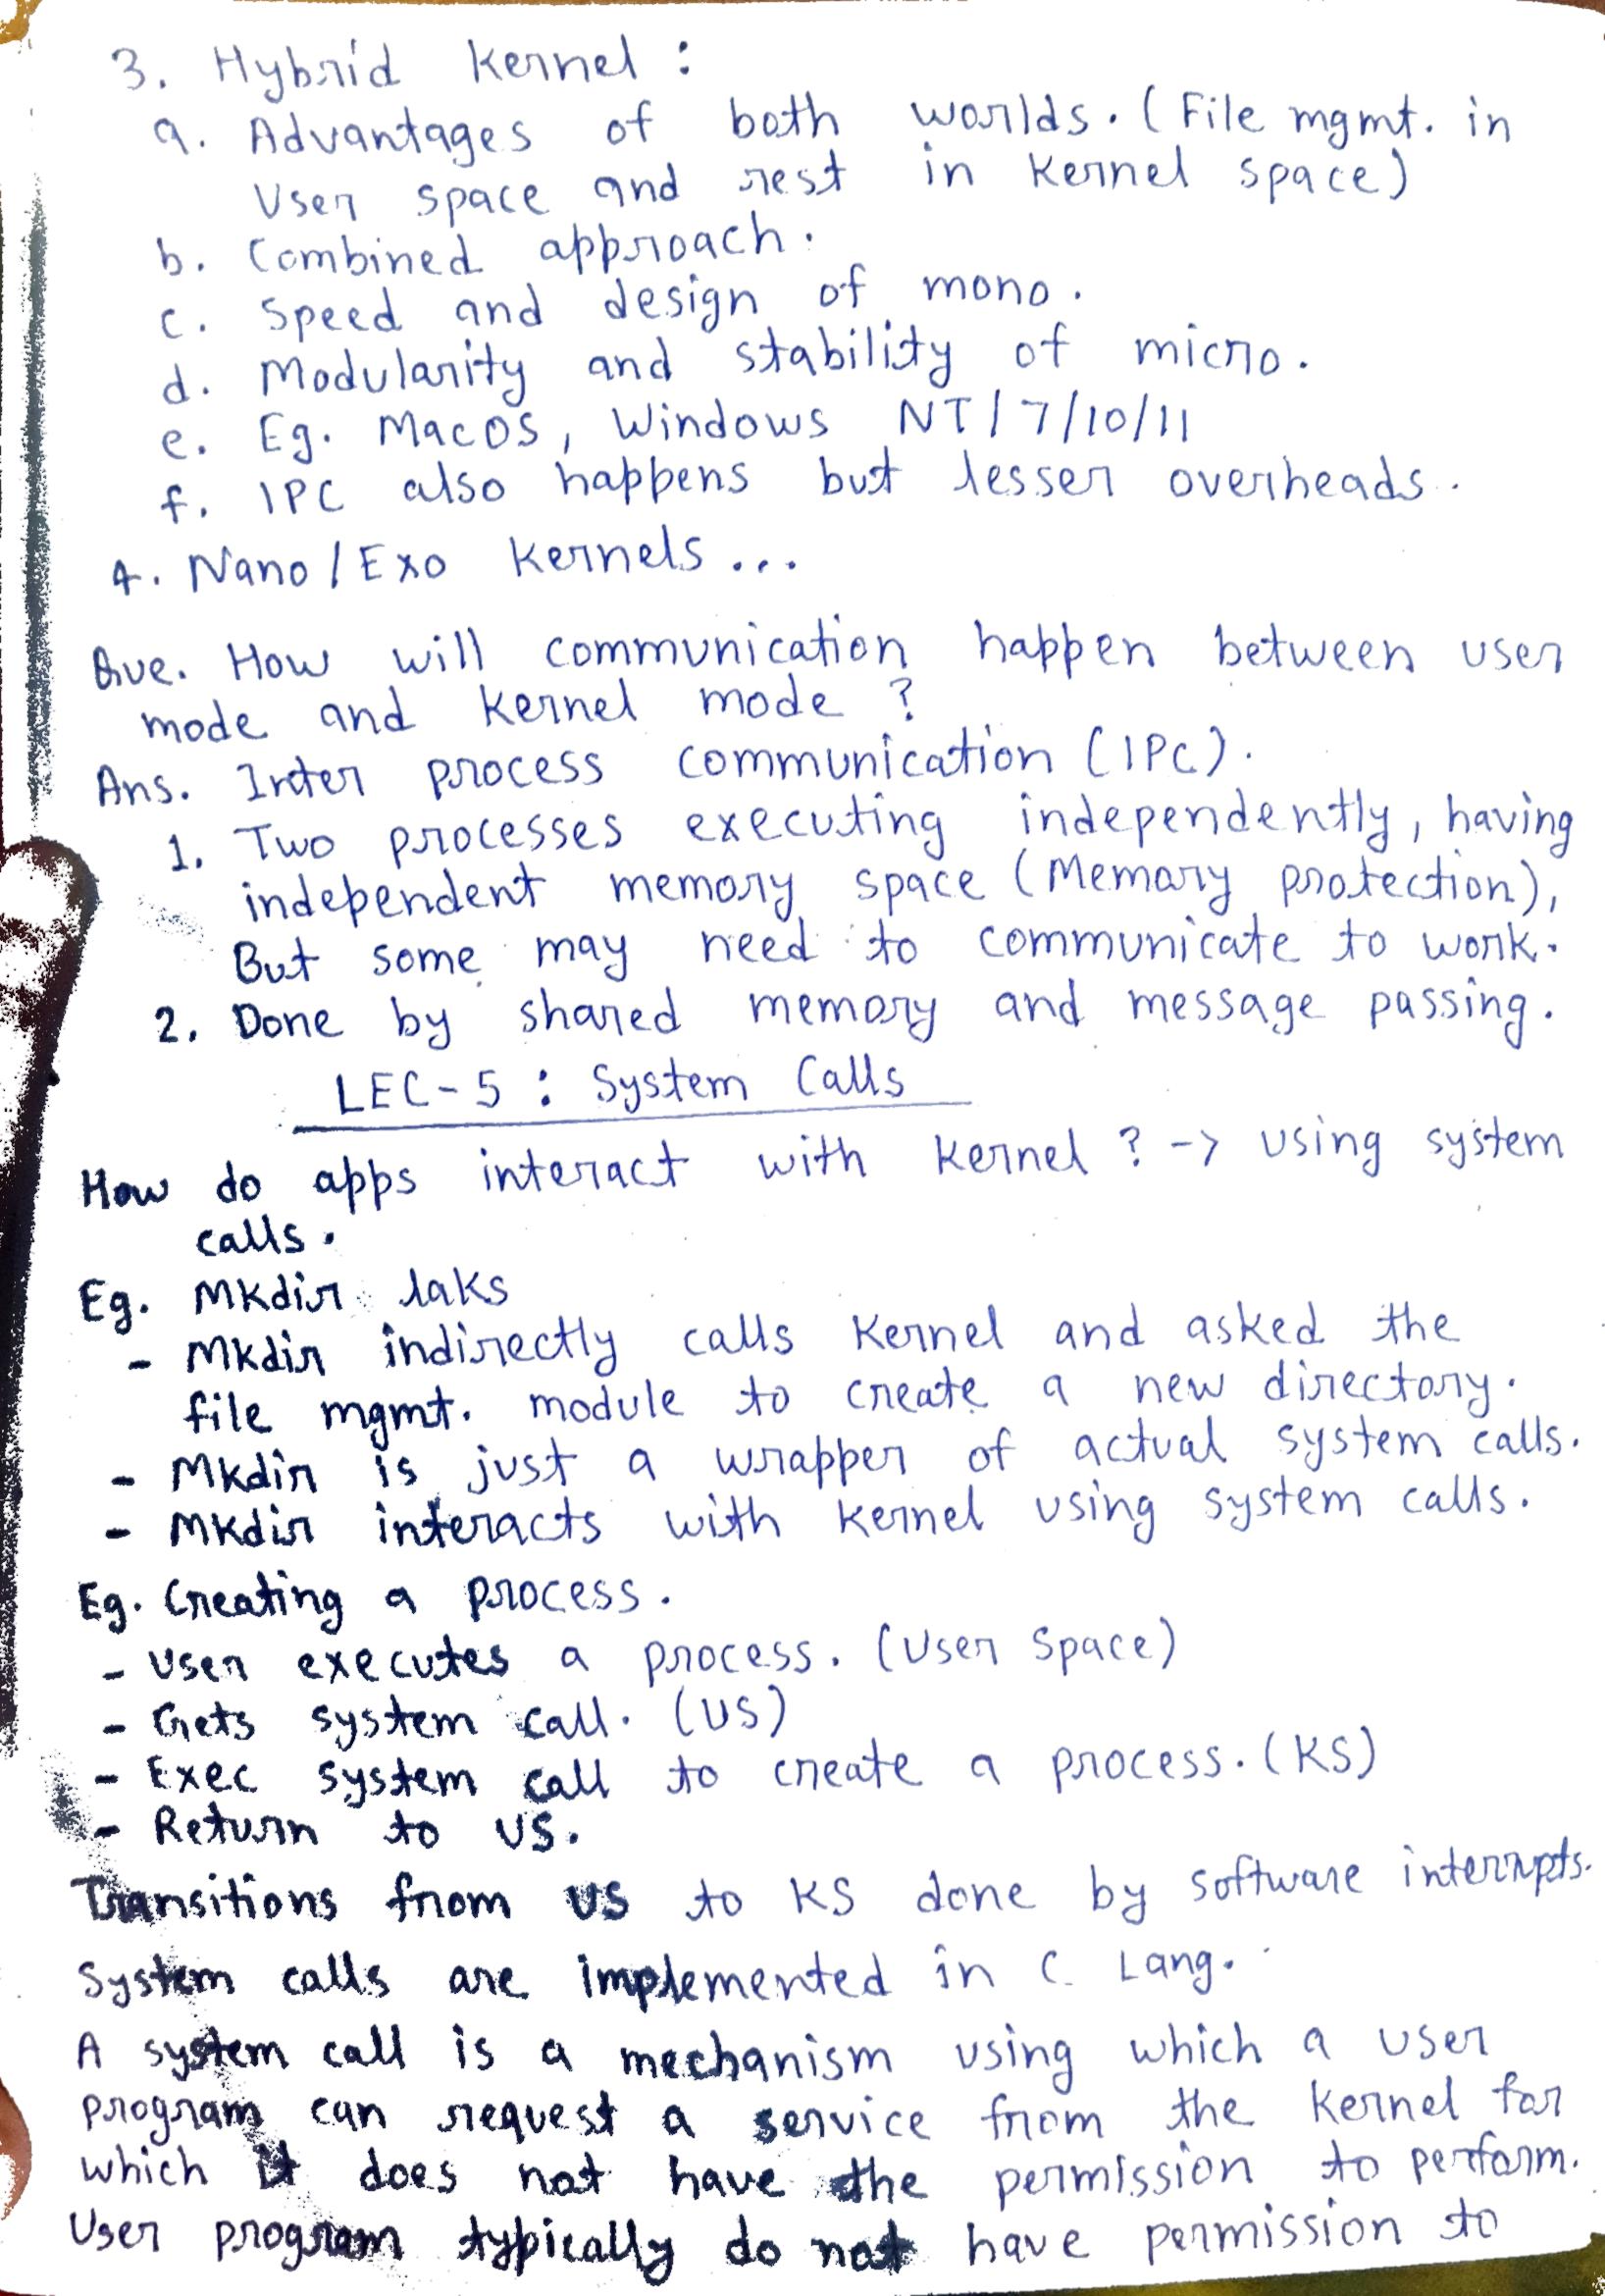 3. Hybrid Kernel :
a. Advantages of both worlds. (File mgmt. in
User space and rest in Kernel space)
b. Combined approach.
c. Speed and design of mono.
d. Modularity and stability of micro.
e. Eg. MacOS, Windows NT/7/10/11
f. IPC also happens but lesser overheads.
4. Nano/Exo Kernels...
Que. How will communication happen between user
mode and Kernel mode ?
Ans. Inter process communication (IPC).
1. Two processes executing independently, having
independent memory space (Memory protection),
But some may need to communicate to work.
2. Done by shared memory and message passing.
LEC-5 : System Calls
How do apps interact with Kernel ? -> using system
calls.
Eg. Mkdir laks
- Mkdir indirectly calls Kernel and asked the
file mgmt. module to create a new directory.
- Mkdir is just a wrapper of actual system calls.
- Mkdir interacts with Kernel using system calls.
Eg. Creating a process.
- User executes a process. (User Space)
- Gets system call. (US)
- Exec system call to create a process. (KS)
- Return to US.
Transitions from US to KS done by software interrupts.
System calls are implemented in C Lang.
A system call is a mechanism using which a user
program can request a service from the kernel for
which it does not have the permission to perform.
User program typically do not have permission to